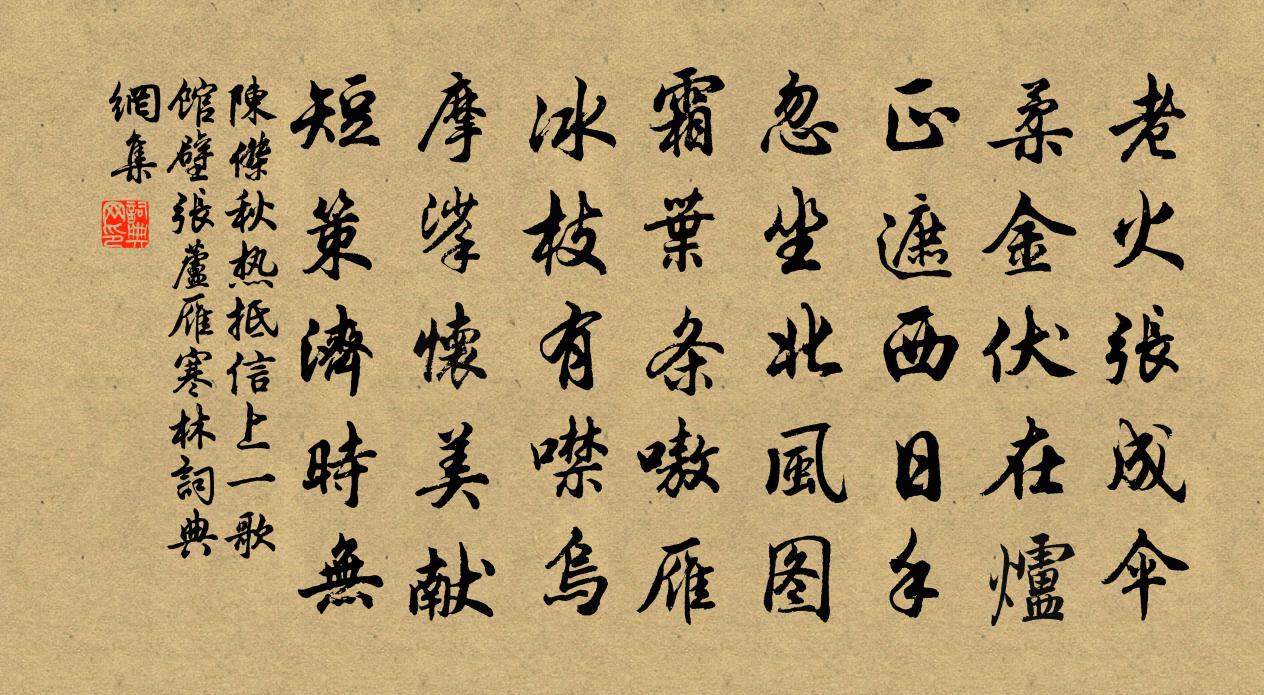 老火張成伞
柔金伏在爐
正遮西日手
忽坐北風图
霜葉条嗷雁
冰枝有噤烏
摩挲懷美献
短策濟時無
陳傑秋热抵信上一歌
館壁張蘆雁寒林詞典
網集
詞典網印